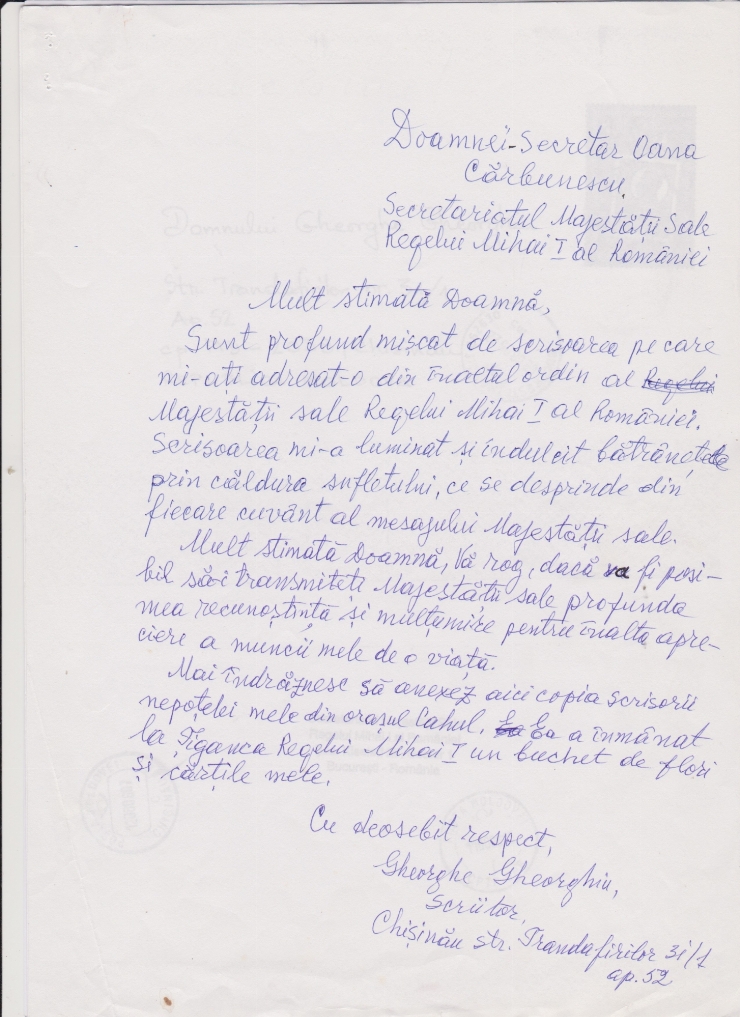 Doamnei-Secretar Oana
Cărbunescu.
Secretariatul Majestății Sale
Regelui Mihai I al României
Mult stimată Doamnă,
Sunt profund mișcat de scrisoarea pe care
mi-ați adresat-o din înaltul ordin al Regelui
Majestății sale Regelui Mihai I al României.
Scrisoarea mi-a luminat și îndulcit bătrânețele
prin căldura sufletului, ce se desprinde din
fiecare cuvânt al mesajului Majestății sale.
Mult stimată Doamnă, Vă rog, dacă va fi posi-
bil să-i transmiteți Majestății sale profunda
mea recunoștință și mulțumire pentru înalta apre-
ciere a muncii mele de o viață.
Mai îndrăznesc să anexez aici copia scrisorii
nepoțelei mele din orașul Cahul. Ea Ea a înmânat
la Țiganca Regelui Mihai I un buchet de flori
și cărțile mele.
Cu deosebit respect,
Gheorghe Gheorghiu,
scriitor,
Chișinău str. Trandafirilor 31/1
ap. 52
Domnului Gheorghe
Str. Trandafirilor
Ap 52
București - România